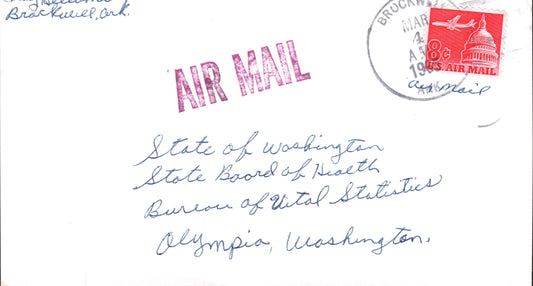 Brockwell, Ark.
AIR MAIL
BROCKWELL
MAR
4
AM
1963
ARK
8¢
US AIR MAIL
Air Mail
State of Washington
State Board of Health
Bureau of Vital Statistics
Olympia, Washington.